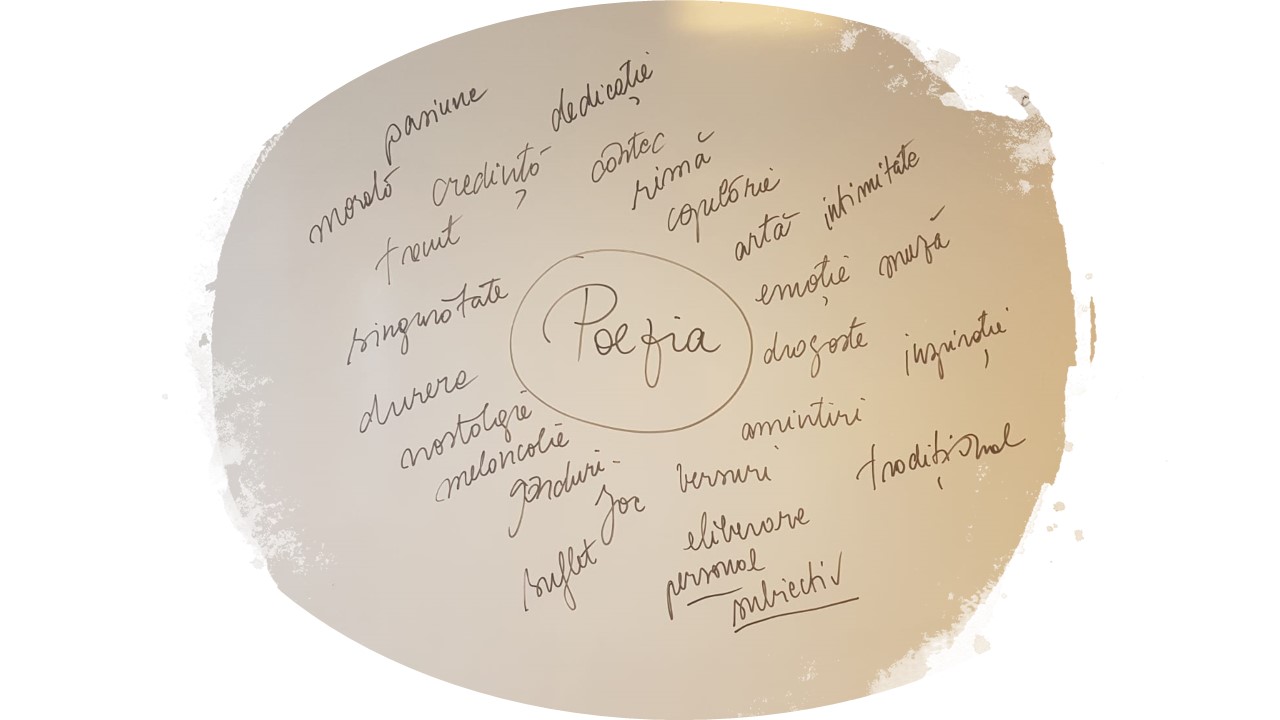 pasiune
dedicație
morală
credință
cântec
rimă
trecut
copilărie
artă
intimitate
singurătate
Poezia
emoție
muză
dragoste
inspirație
durere
nostalgie
melancolie
amintiri
gânduri
joc
versuri
tradițional
suflet
eliberare
personal
subiectiv